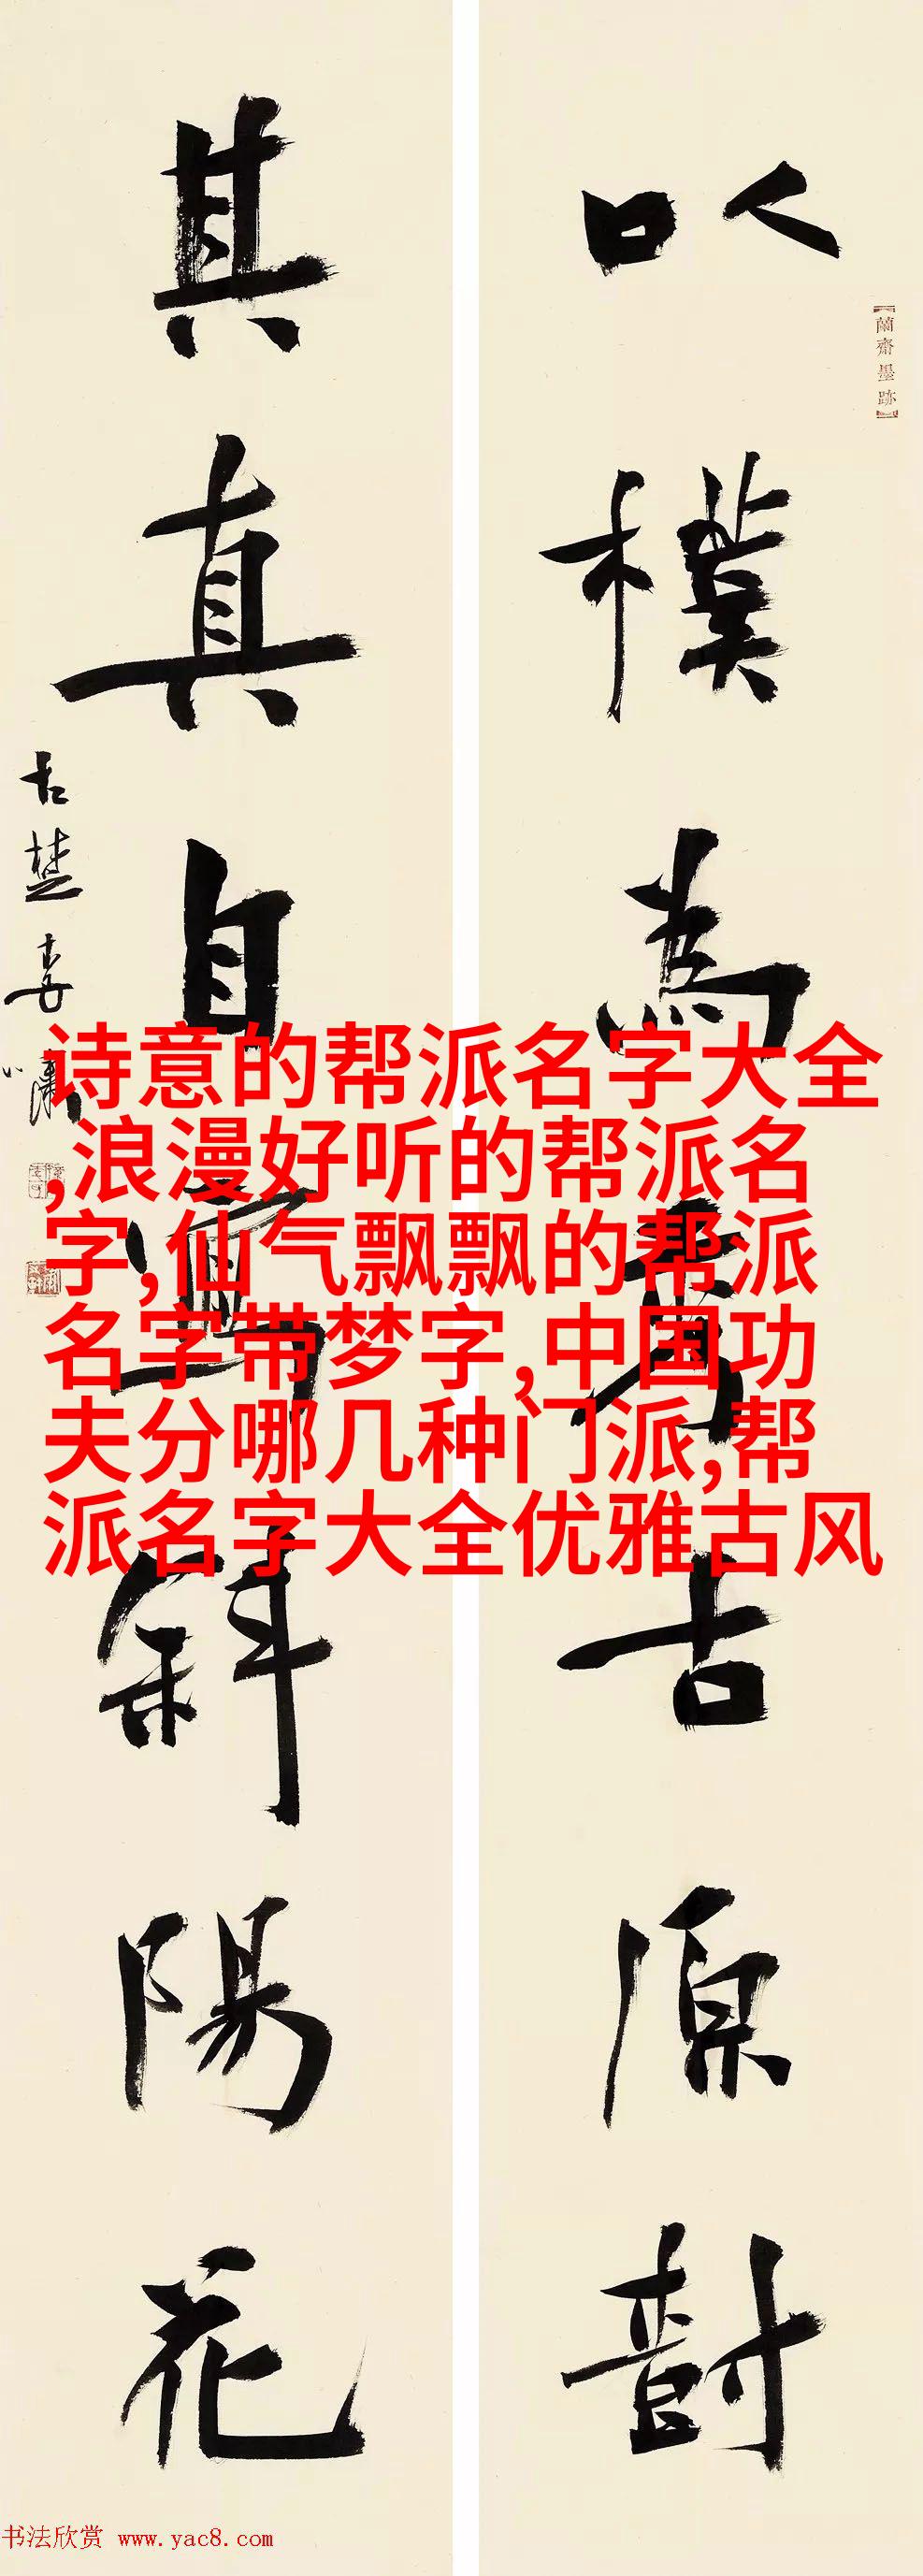 以樸為秀古原樹
【蘭齋墨跡】
其真自寫斜陽花
古楚
诗意的帮派名字大全
,浪漫好听的帮派名
字,仙气飘飘的帮派
名字带梦字,中国功
夫分哪几种门派,帮
派名字大全优雅古风
书法欣赏 www.yac8.com